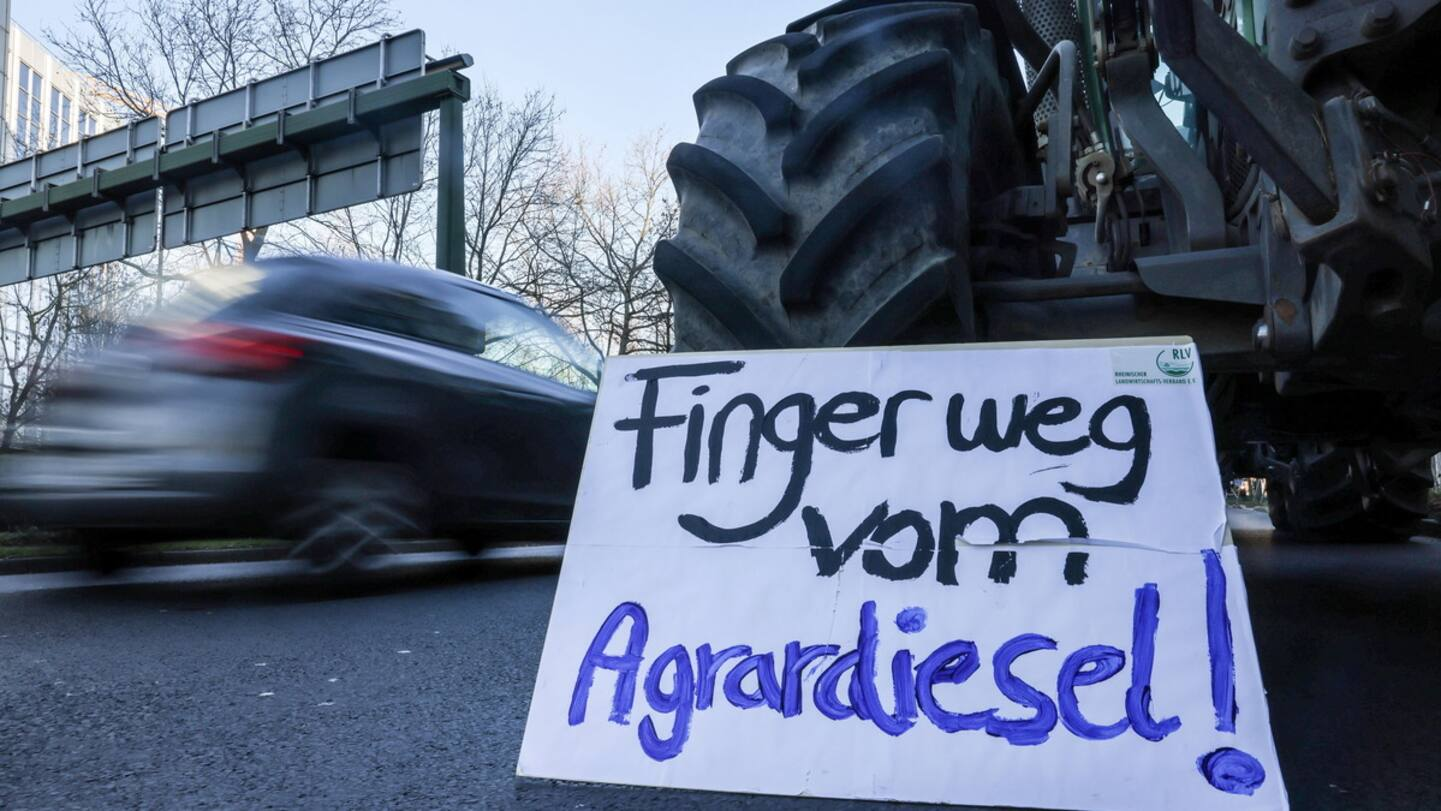 RLV
RHEINISCHER
LANDWIRTSCHAFTS-VERBAND E.V.
Finger weg
vom
Agrardiesel!